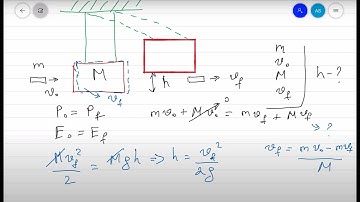 m
v₀
M
v_f
h
v_f
m
v₀
M
v_f
h - ?
P₀ = P_f
mv₀ + Mv₀ = mv_f + Mv_f
0
?
E₀ = E_f
Mv_f²/2 = Mgh ⇒ h = v_f²/2g
v_f = (mv₀ - mv_f)/M